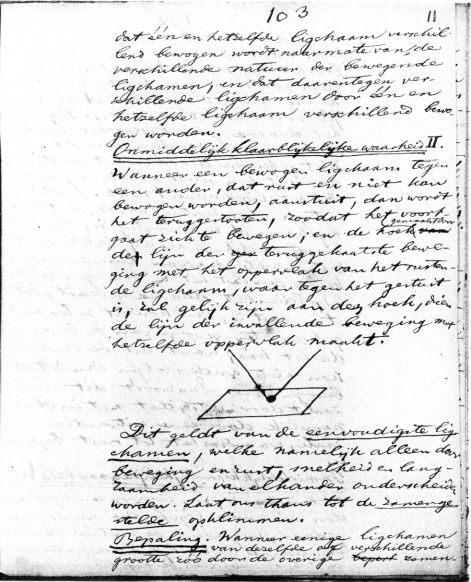 103
11
dat één en hetzelfde ligchaam verschil-
lend bewogen wordt naarmate van de
verschillende natuur der bewegende
ligchamen, en dat daarentegen ver-
schillende ligchamen door één en
hetzelfde ligchaam verschillend bewo-
gen worden.
Onmiddelijk klaarblijkelijke waarheid II.
Wanneer een bewogen ligchaam tegen
een ander, dat rust en niet kan
bewogen worden, aanstuit, dan wordt
het teruggestooten, zoodat het voort
gaat zich te bewegen; en de hoek gemaakt door
de lijn der teruggekaatste bewe-
ging met het oppervlak van het rusten-
de ligchaam, waar tegen het gestuit
is, zal gelijk zijn aan den hoek, dien
de lijn der invallende beweging met
hetzelfde oppervlak maakt.
Dit geldt van de eenvoudigste lig
chamen, welke namelijk alleen door
beweging en rust, snelheid en lang-
zaamheid van elkander onderscheiden
worden. Laat ons thans tot de zamenge
stelde opklimmen.
Bepaling. Wanneer eenige ligchamen
van dezelfde of verschillende
grootte zoo door de overige zamen.